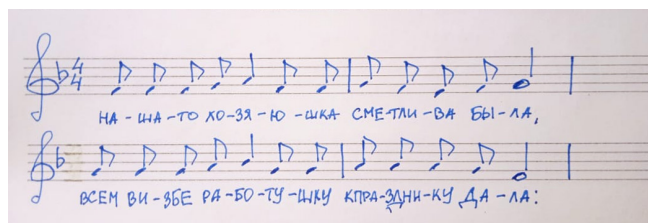 4
4
НА-ША-ТО ХО-ЗЯ-Ю-ШКА СМЕ-ТЛИ-ВА БЫ-ЛА,
ВСЕМ ВИ-ЗБЕ РА-БО-ТУ-ШКУ КПРА-ЗДНИ-КУ ДА-ЛА: